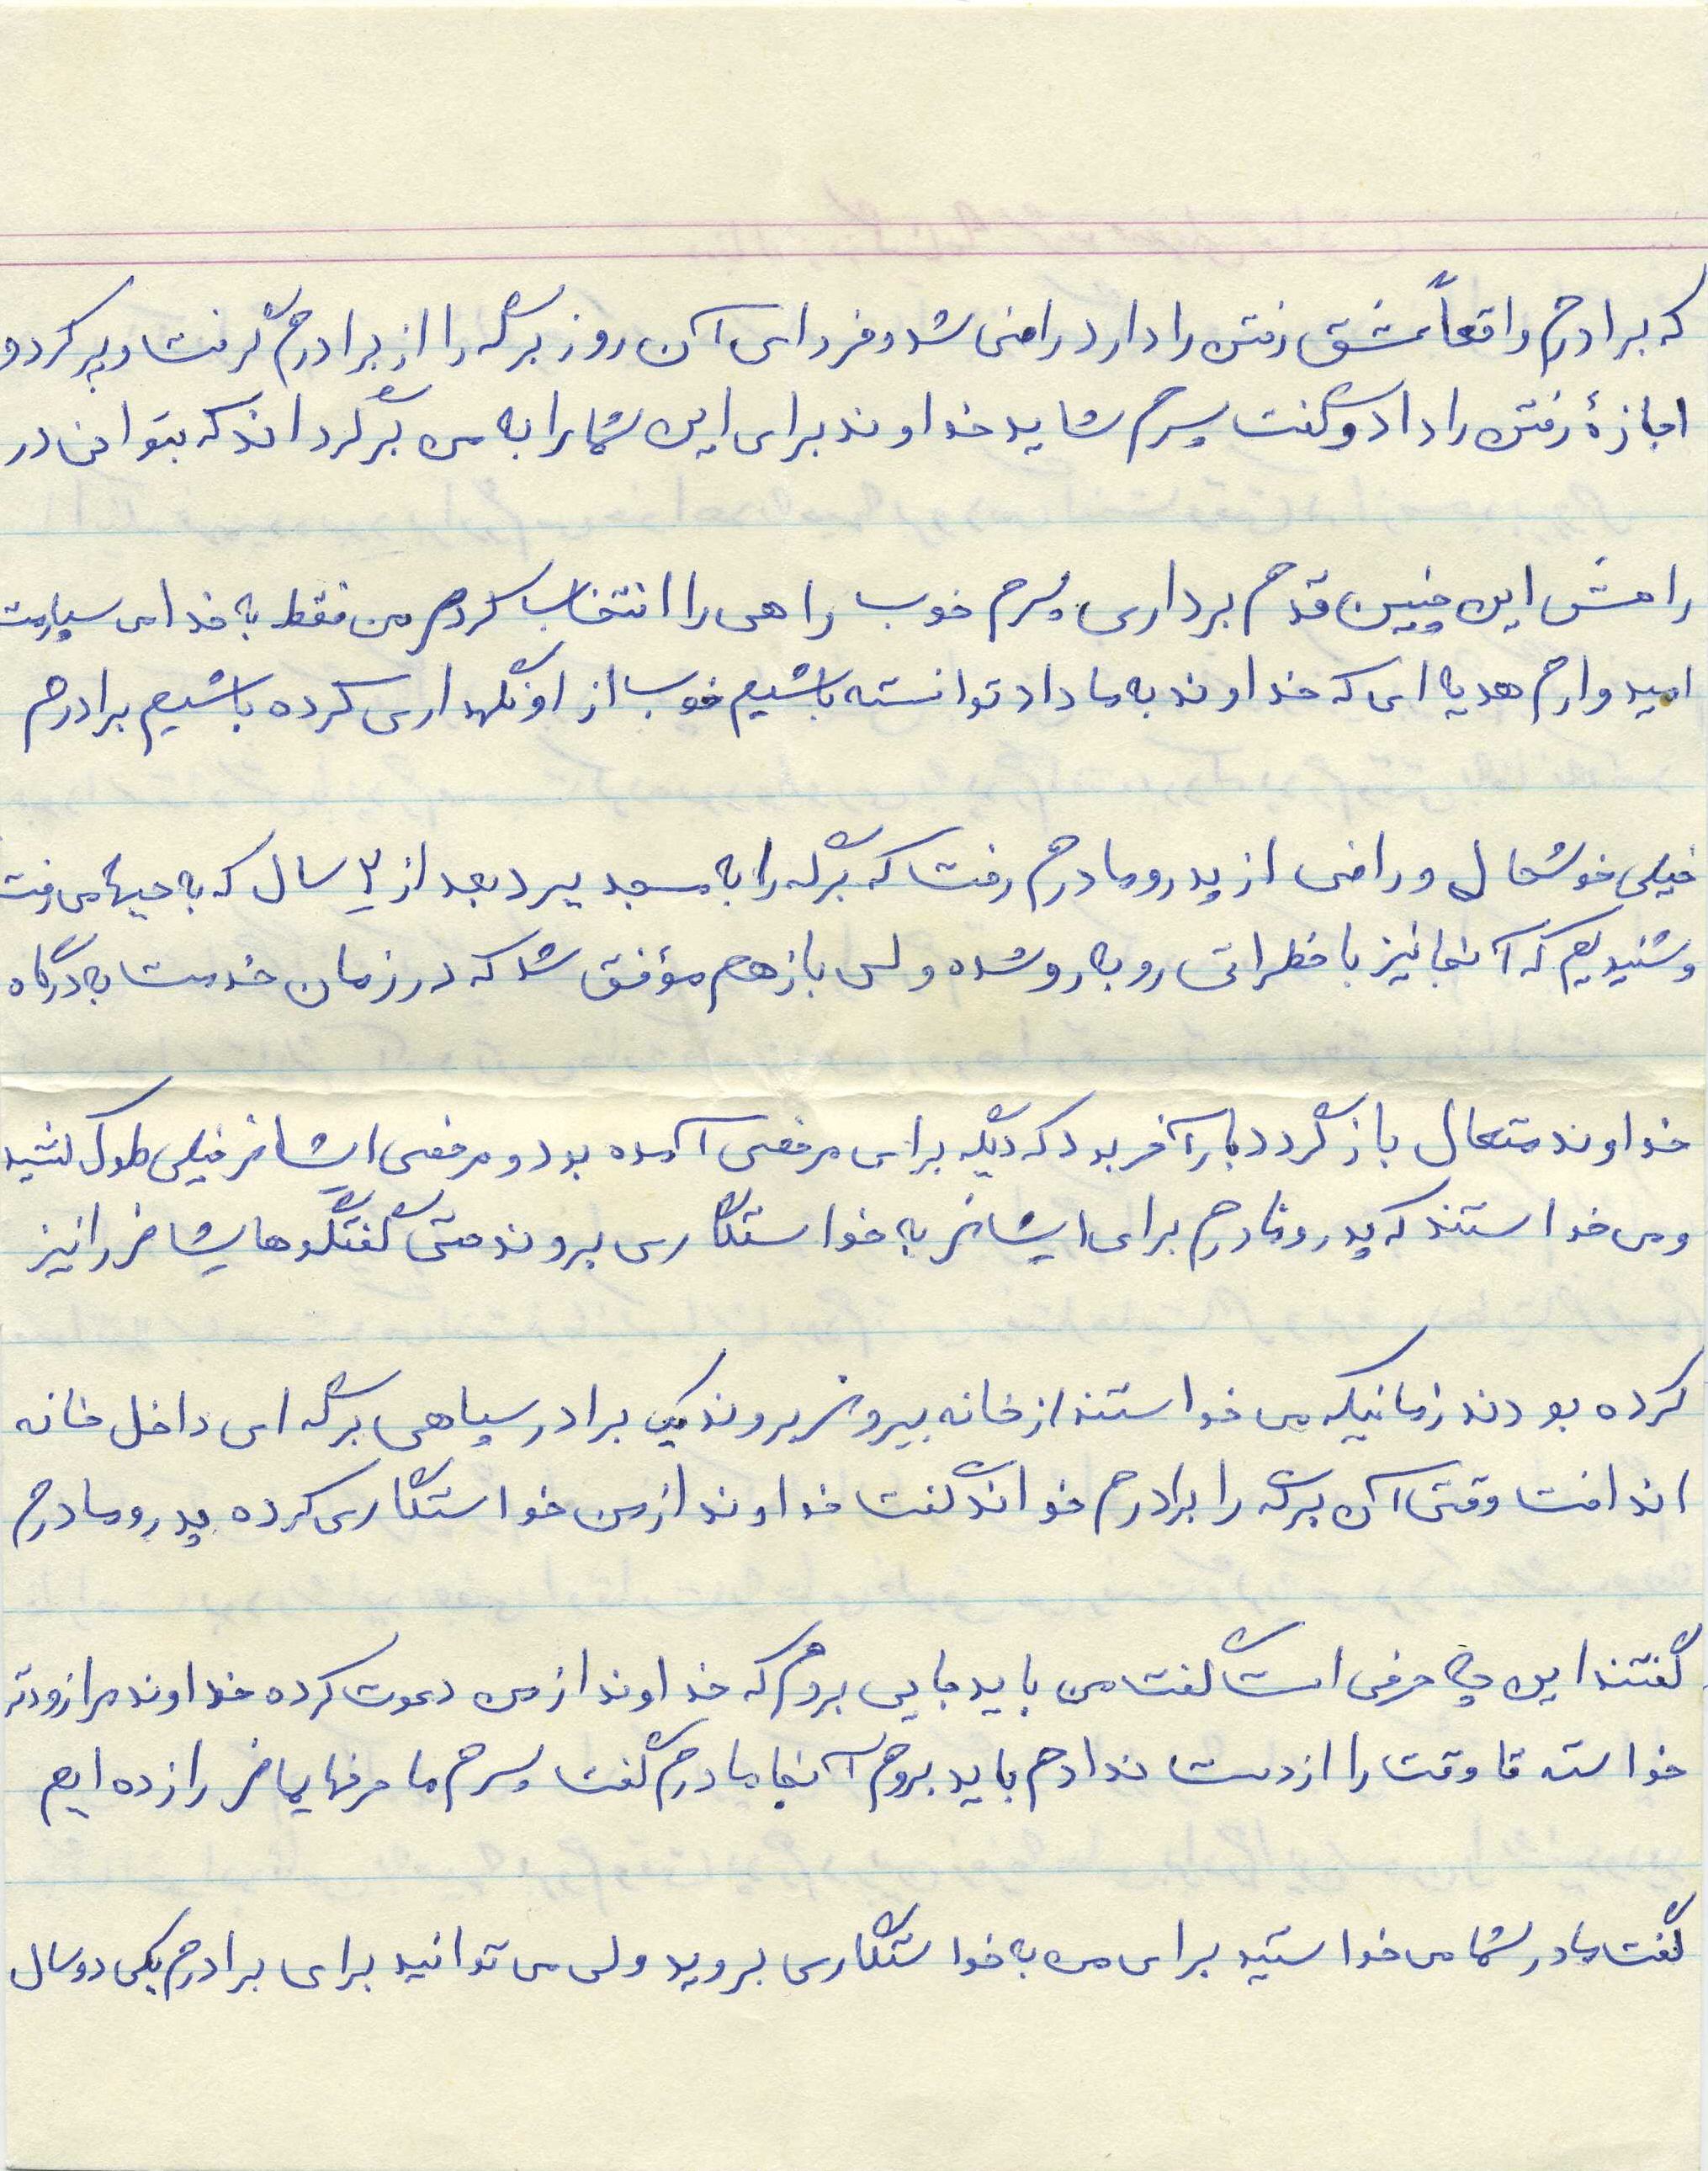 که برادرم واقعاً عشق رفتن را دارد راضی شد و فردای آن روز برگه را از برادرم گرفت و پر کرد و
اجازۀ رفتن را داد و گفت پسرم شاید خداوند برای این شما را به من برگرداند که بتوانی در
راهش این چنین قدم برداری، پسرم خوب راهی را انتخاب کردی من فقط به خدا می سپارمت
امیدوارم هدیه ای که خداوند به ما داد توانسته باشیم خوب از او نگهداری کرده باشیم برادرم
خیلی خوشحال و راضی از پدر و مادرم رفت که برگه را به مسجد ببرد بعد از ۲ سال که به جبهه می رفت
و شنیدیم که آنجا نیز با خطراتی روبه رو شده ولی باز هم مؤفق شد که در زمان خدمت به درگاه
خداوند متعال باز گردد بار آخر بود که دیگه برای مرخصی آمده بود و مرخصی ایشان خیلی طول کشید
و می خواستند که پدر و مادرم برای ایشان به خواستگاری بروند حتی گفتگوهایشان را نیز
کرده بودند زمانیکه می خواستند از خانه بیرون بروند یک برادر سپاهی برگه ای داخل خانه
انداخت وقتی آن برگه را برادرم خواند گفت خداوند از من خواستگاری کرده پدر و مادرم
گفتند این چه حرفی است گفت من باید جایی بروم که خداوند از من دعوت کرده خداوند مرا زودتر
خواسته تا وقت را از دست ندادم باید بروم آنجا مادرم گفت پسرم ما حرفهایمان را زده ایم
گفت مادر شما می خواستید برای من به خواستگاری بروید ولی می توانید برای برادرم یکی دو سال